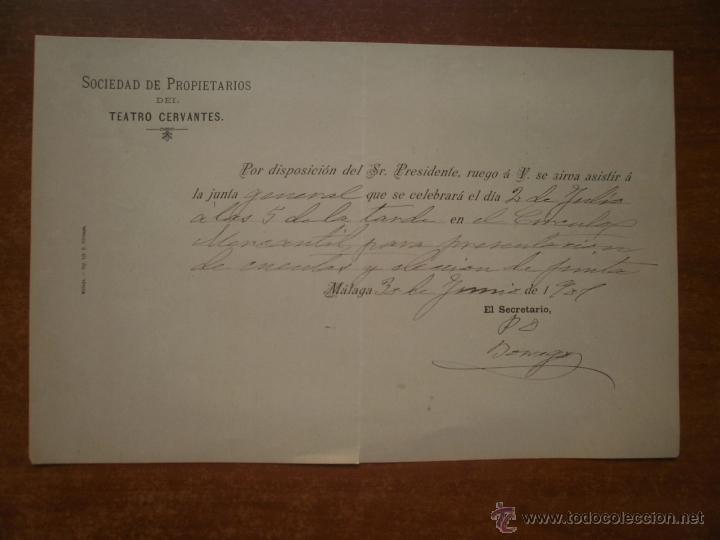 SOCIEDAD DE PROPIETARIOS
DEL
TEATRO CERVANTES.
Por disposición del Sr. Presidente, ruego á V. se sirva asistir á
la junta general que se celebrará el día 2 de Julio
a las 5 de la tarde en el Circulo
Mercantil, para presentacion
de cuentas y eleccion de junta
Málaga 30 de Junio de 19
El Secretario,
P D
www.todocoleccion.net